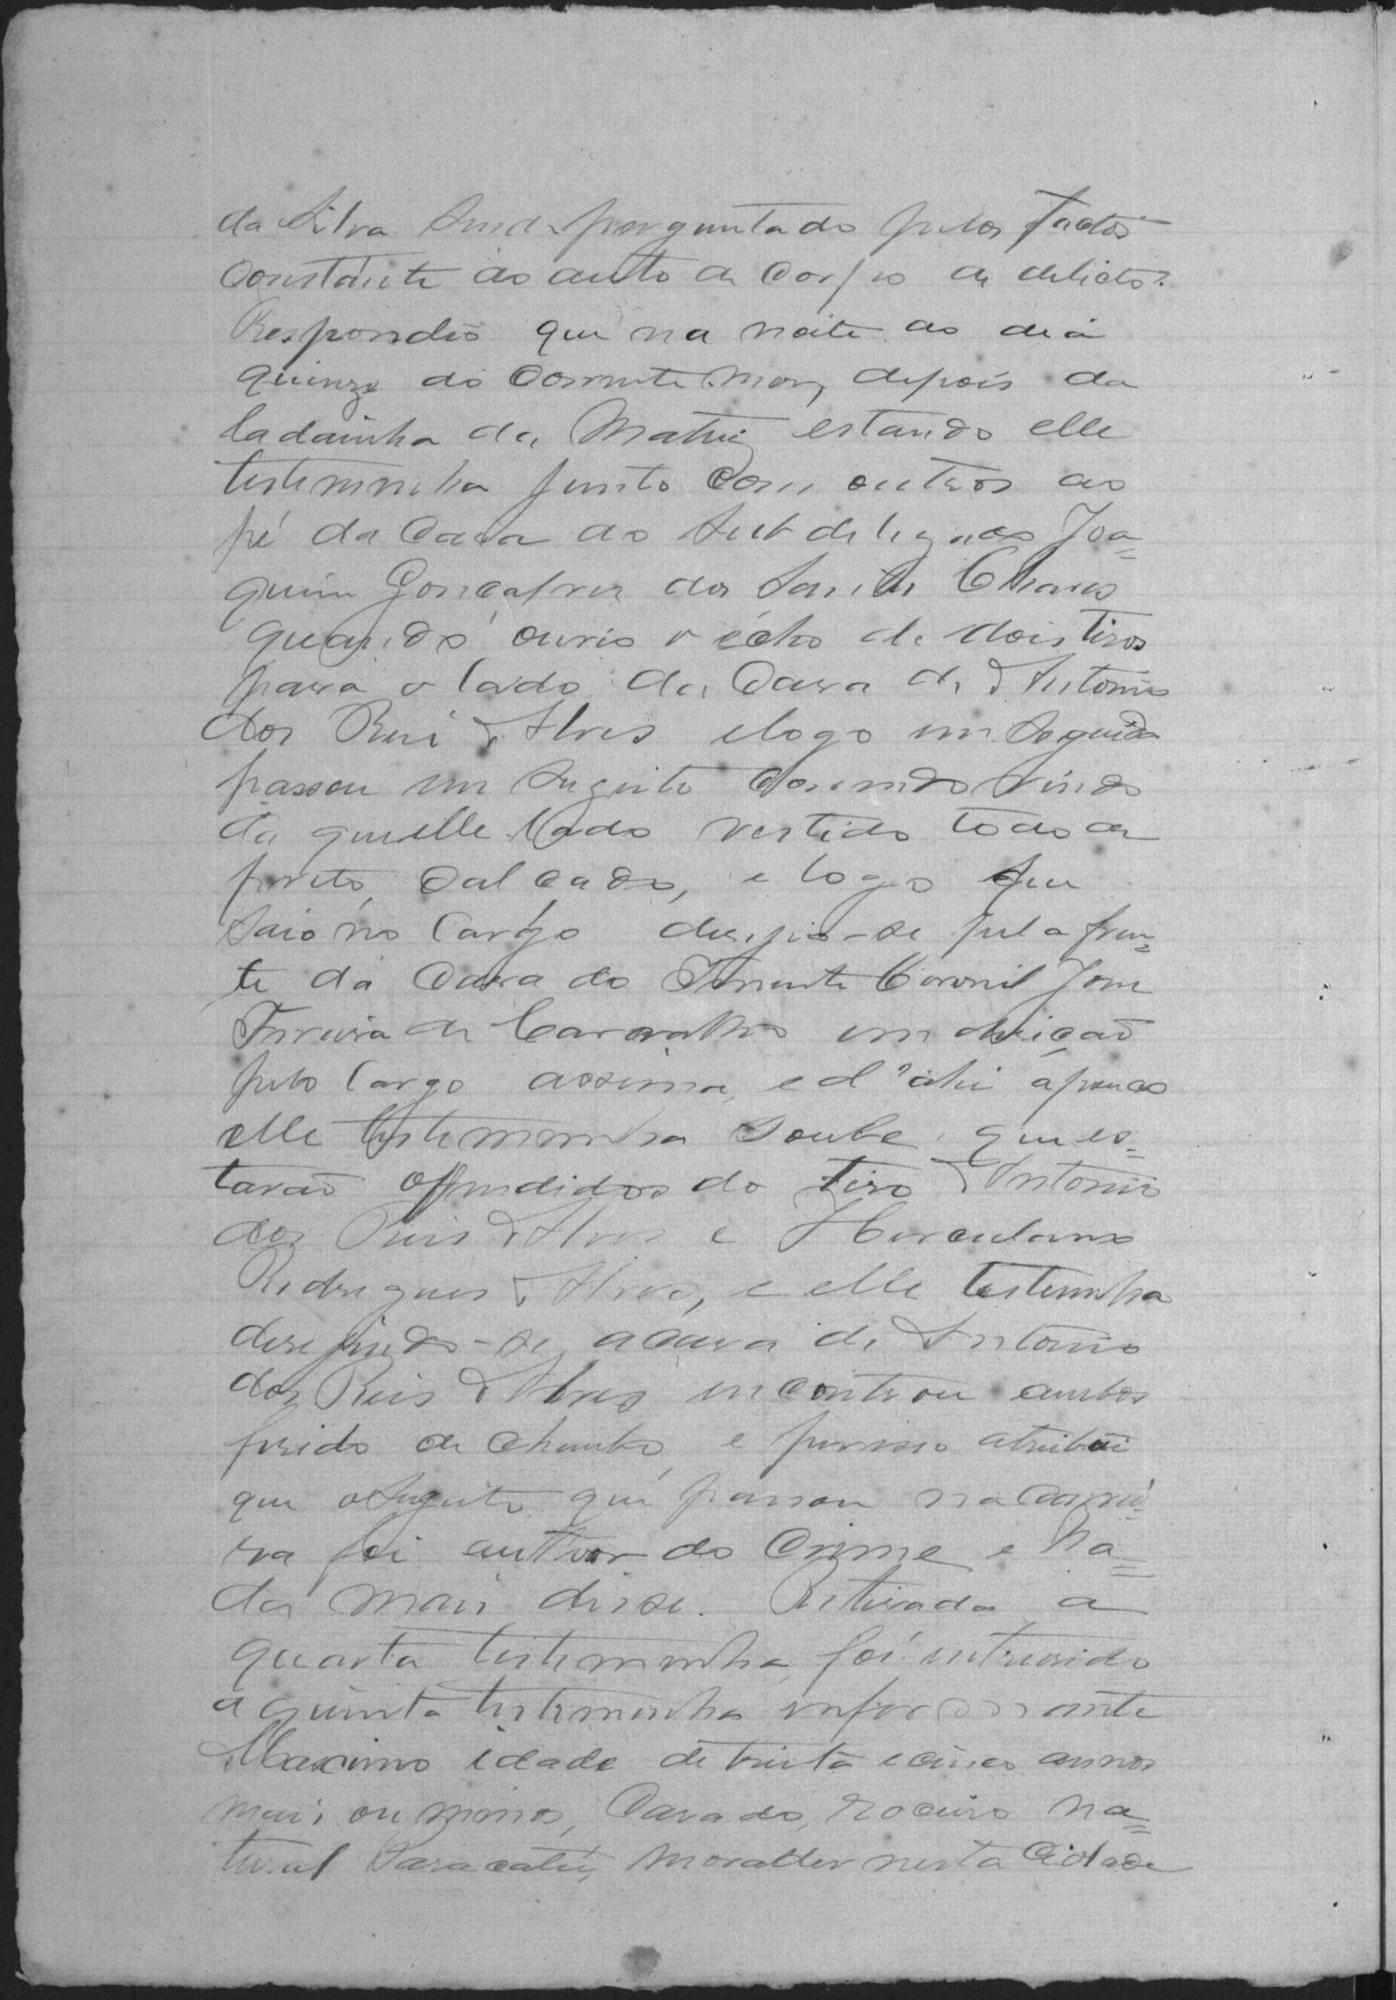 da Silva Sendo perguntado pelos factos
constante do auto de Corpo de delicto?
Respondeo que na noite do dia
quinze do Corrente mez, depois da
ladainha da Matriz estando elle
testemunha junto com outros ao
pé da Casa do Subdelegado Joa=
quim Gonçalves dos Santos Chaves
quando ouvio o écho de dois tiros
para o lado da Casa de Antonio
dos Reis Alves e logo em Seguida
passou um Sugeito Correndo vindo
da quelle lado vestido todo de
preto, Calçado, e logo que
Saio no Largo deregio-se pela fren=
te da Casa do Tenente Coronel Jose
Ferreira de Carvalho em direição
pelo largo assima, e d'ahi a pouco
elle testemunha Soube que es=
tavão offendidos do tiro Antonio
dos Reis Alves e Herculano
Rodrigues Alves, e elle testemunha
deregindo-se a Casa de Antonio
dos Reis Alves encontrou ambos
ferido de Chumbo, e por isso atribui
que o Sugeito que passou na Carrei=
ra foi author do Crime e Na=
da mais disse. Retirada a
quarta testemunha foi introsido
a quinta testemunha informante
Maximo idade de trinta e cinco annos
mais ou menos, Casado, roceiro na=
tural Paracatú, morador nesta Cidade